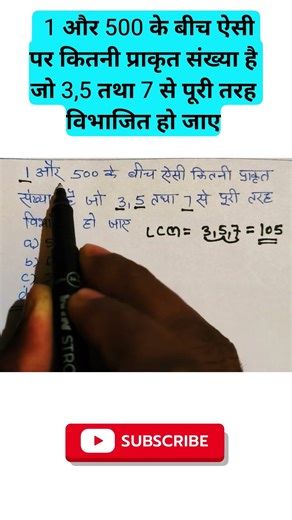 1 और 500 के बीच ऐसी
पर कितनी प्राकृत संख्या है
जो 3,5 तथा 7 से पूरी तरह
विभाजित हो जाए
1 और 500 के बीच ऐसी कितनी प्राकृत
संख्या हैं जो 3, 5 तथा 7 से पूरी तरह
हो जाए
LCM = 3,5,7 = 105
a)
b)
c)
SUBSCRIBE